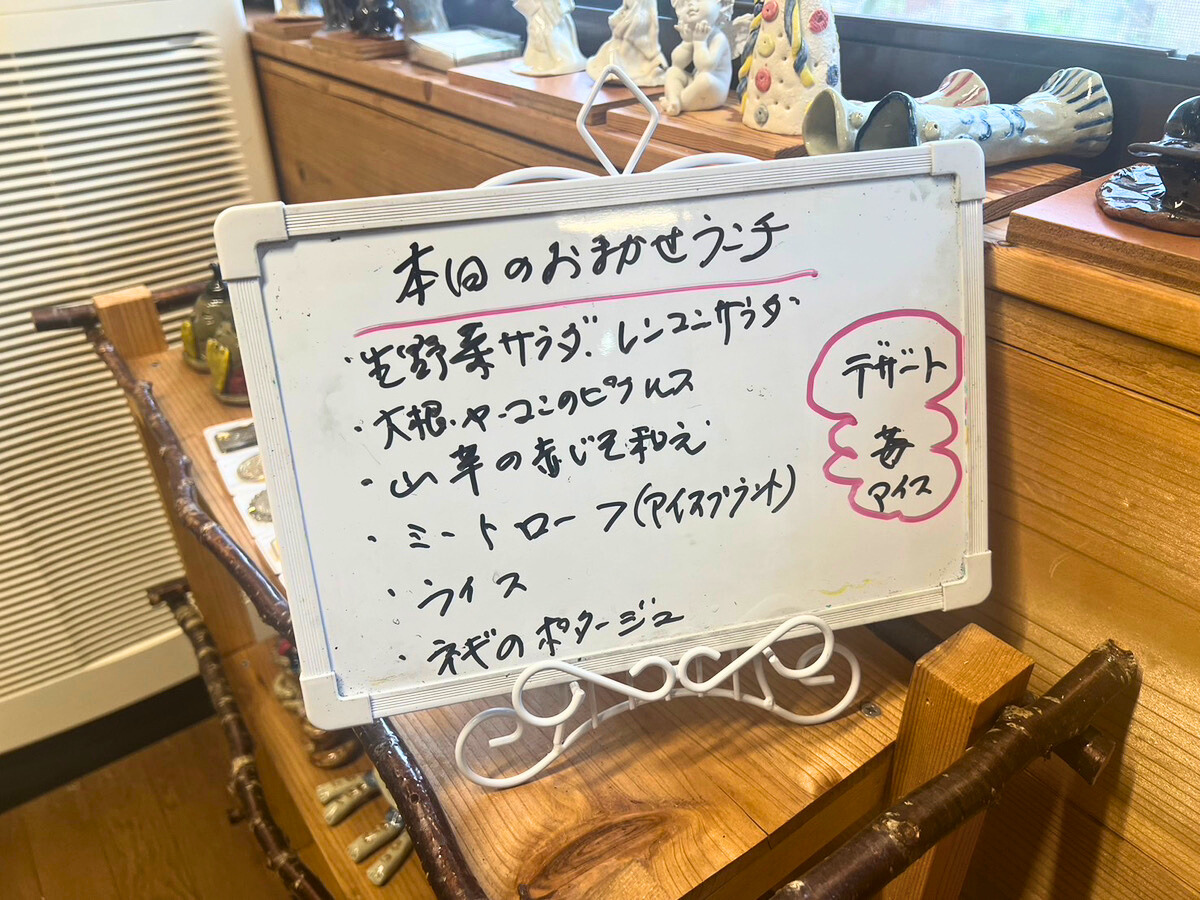 本日のおまかせランチ
・生野菜サラダ・レンコンサラダ
・大根・ヤーコンのピクルス
・山芋の赤じそ和え
・ミートローフ(アイスプラント)
・ライス
・ネギのポタージュ
デザート
苺
アイス